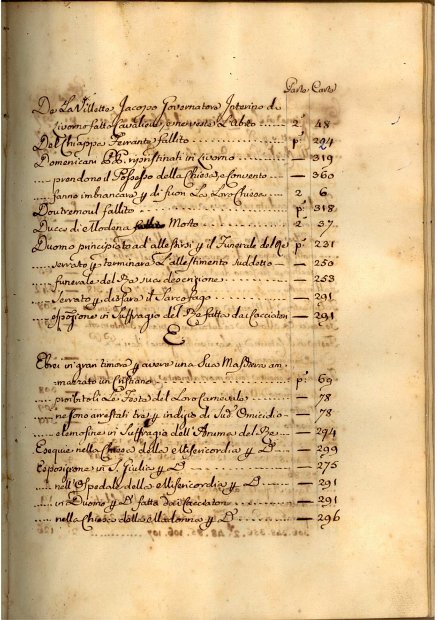 Parte Carte
De La Villette Jacopo Governatore Interino di
Livorno fatto Cavaliere, e ne veste L'abito 2 48
Del Chiappe Ferrante fallito p.e 294
Domenicani PP. ripristinati in Livorno — 319
prendono il Possesso della Chiesa, e Convento — 360
fanno imbiancare y di fuori La Loro Chiesa 2 6
Doutremoul fallito p.e 318
Duca di Modena Morto 2 37
Duomo principiato ad allestirsi y il Funerale del Re p.e 231
serrato y terminare L'allestimento suddetto — 250
funerale del Re sua descrizione — 253
serrato y disfare il Sarcofago — 291
esposizione in Suffragio del Re fatta dai Cacciatori — 291
E
Ebrei in gran timore y avere una Sua Maschera am
mazzato un Cristiano p.e 69
proibitoli Le Feste del Loro Carnevale — 78
ne sono arrestati tre y indizio di Sud.o Omicidio — 78
elemosine in Suffragio dell'Anima del Re — 294
Esequie nella Chiesa della Misericordia y D.o — 299
Esposizione in S. Giulia y D.o — 275
nell'Ospedale della Misericordia y D.o — 291
in Duomo y D.o fatta dai Cacciatori — 291
nella Chiesa della Madonna y D.o — 296